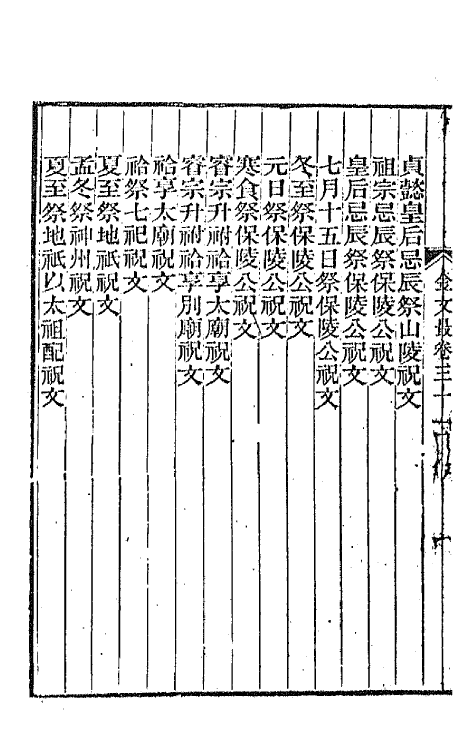 金文最卷三十
貞懿皇后忌辰祭山陵祝文
祖宗忌辰祭保陵公祝文
皇后忌辰祭保陵公祝文
七月十五日祭保陵公祝文
冬至祭保陵公祝文
元日祭保陵公祝文
寒食祭保陵公祝文
睿宗升祔祫享太廟祝文
睿宗升祔祫享別廟祝文
祫享太廟祝文
祫祭七祀祝文
夏至祭地祇祝文
孟冬祭神州祝文
夏至祭地祇以太祖配祝文